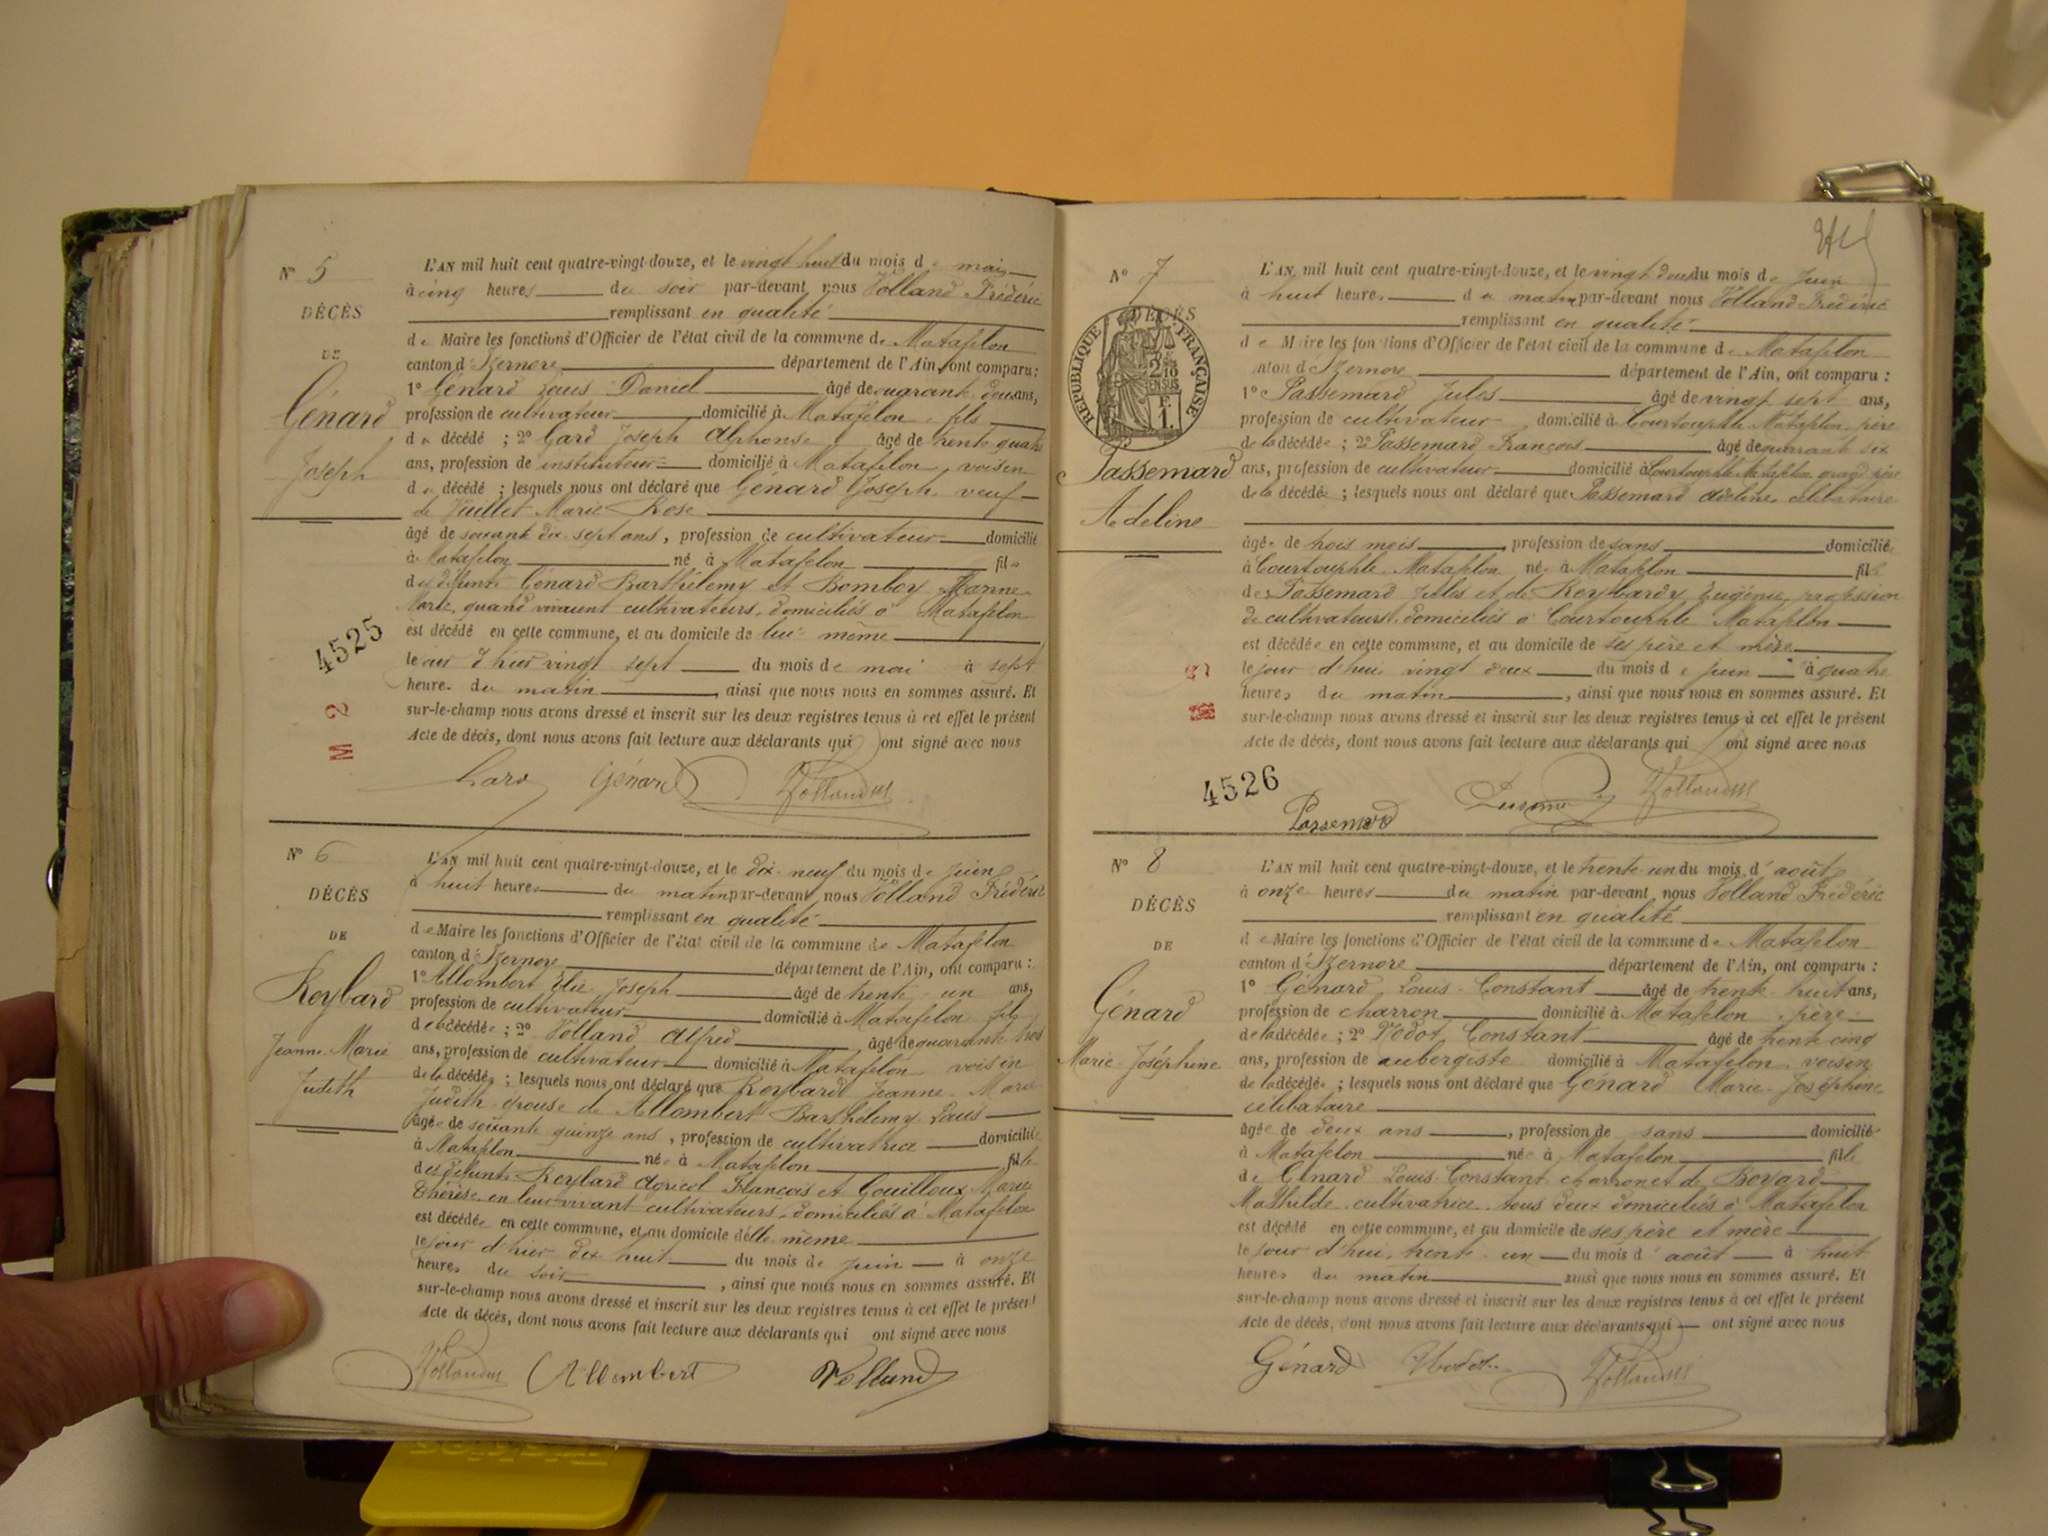 N° 5
DÉCÈS
DE
Génard
Joseph
L'AN mil huit cent quatre-vingt-douze, et le vingt huit du mois de mai
à cinq heures du soir par-devant nous Volland Frédéric
remplissant en qualité
de Maire les fonctions d'Officier de l'état civil de la commune de Matafelon
canton d'Izernore département de l'Ain, ont comparu :
1° Génard Louis Daniel âgé de quarante deux ans,
profession de cultivateur domicilié à Matafelon, fils
du décédé ; 2° Gard Joseph Alphonse âgé de trente quatre
ans, profession de instituteur domicilié à Matafelon, voisin
du décédé ; lesquels nous ont déclaré que Génard Joseph, veuf
de Vuillet Marie Rose
âgé de soixante dix sept ans, profession de cultivateur domicilié
à Matafelon né à Matafelon fils
des défunts Génard Barthélemy et Bomboy Jeanne
Marie, quand vivaient cultivateurs, domiciliés à Matafelon
est décédé en cette commune, et au domicile de lui même
le jour d'hier vingt sept du mois de mai à sept
heures du matin, ainsi que nous nous en sommes assuré. Et
sur-le-champ nous avons dressé et inscrit sur les deux registres tenus à cet effet le présent
Acte de décès, dont nous avons fait lecture aux déclarants qui ont signé avec nous
Gard Génard Vollandus
4525
M 2
N° 6
DÉCÈS
DE
Reybard
Jeanne Marie
Judith
L'AN mil huit cent quatre-vingt-douze, et le dix-neuf du mois de Juin
à huit heures du matin par-devant nous Volland Frédéric
remplissant en qualité
de Maire les fonctions d'Officier de l'état civil de la commune de Matafelon
canton d'Izernore département de l'Ain, ont comparu :
1° Allombert Elie Joseph âgé de trente-un ans,
profession de cultivateur domicilié à Matafelon fils
de la décédée ; 2° Volland Alfred âgé de quarante trois
ans, profession de cultivateur domicilié à Matafelon voisin
de la décédée ; lesquels nous ont déclaré que Reybard Jeanne-Marie
Judith épouse de Allombert Barthélemy Louis
âgée de soixante quinze ans, profession de cultivatrice domiciliée
à Matafelon née à Matafelon fille
des défunts Reybard Agricol François et Gouilloux Marie
Thérèse en leur vivant cultivateurs domiciliés à Matafelon
est décédée en cette commune, et au domicile d'elle même
le jour d'hier dix huit du mois de juin à onze
heures du soir, ainsi que nous nous en sommes assuré. Et
sur-le-champ nous avons dressé et inscrit sur les deux registres tenus à cet effet le présent
Acte de décès, dont nous avons fait lecture aux déclarants qui ont signé avec nous
Vollandus Allombert Volland
N° 7
DÉCÈS
RÉPUBLIQUE FRANÇAISE
2/10
EN SUS
F.
1.
Passemard
Adeline
L'AN mil huit cent quatre-vingt-douze, et le vingt deux du mois de Juin
à huit heures du matin par-devant nous Volland Frédéric
remplissant en qualité
de Maire les fonctions d'Officier de l'état civil de la commune de Matafelon
canton d'Izernore département de l'Ain, ont comparu :
1° Passemard Jules âgé de vingt sept ans,
profession de cultivateur domicilié à Courtouphle Matafelon père
de la décédée ; 2° Passemard François âgé de quarante six
ans, profession de cultivateur domicilié à Courtouphle Matafelon grand père
de la décédée ; lesquels nous ont déclaré que Passemard Adeline célibataire
âgée de trois mois, profession de sans domiciliée
à Courtouphle Matafelon née à Matafelon fille
de Passemard Jules et de Reybard Eugénie, profession
de cultivateurs, domiciliés à Courtouphle Matafelon
est décédée en cette commune, et au domicile de ses père et mère
le jour d'hui vingt deux du mois de juin à quatre
heures du matin, ainsi que nous nous en sommes assuré. Et
sur-le-champ nous avons dressé et inscrit sur les deux registres tenus à cet effet le présent
Acte de décès, dont nous avons fait lecture aux déclarants qui ont signé avec nous
4526
Passemard Vollandus
N° 8
DÉCÈS
DE
Génard
Marie-Joséphine
L'AN mil huit cent quatre-vingt-douze, et le trente-un du mois d'août
à onze heures du matin par-devant nous Volland Frédéric
remplissant en qualité
de Maire les fonctions d'Officier de l'état civil de la commune de Matafelon
canton d'Izernore département de l'Ain, ont comparu :
1° Génard Louis-Constant âgé de trente-huit ans,
profession de charron domicilié à Matafelon, père
de la décédée ; 2° Vodot Constant âgé de trente cinq
ans, profession de aubergiste domicilié à Matafelon, voisin
de la décédée ; lesquels nous ont déclaré que Génard Marie-Joséphine
célibataire
âgée de deux ans, profession de sans domiciliée
à Matafelon née à Matafelon fille
de Génard Louis-Constant charron et de Boyard
Mathilde cultivatrice tous deux domiciliés à Matafelon
est décédé en cette commune, et au domicile de ses père et mère
le jour d'hui, trente-un du mois d'août à huit
heures du matin ainsi que nous nous en sommes assuré. Et
sur-le-champ nous avons dressé et inscrit sur les deux registres tenus à cet effet le présent
Acte de décès, dont nous avons fait lecture aux déclarants qui ont signé avec nous
Génard Vodot Vollandus